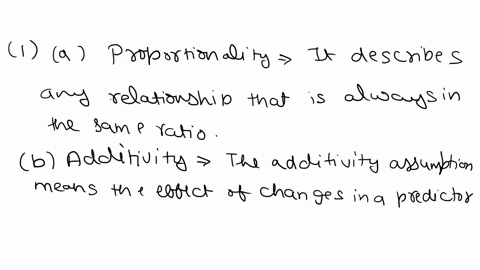 (1) (a) Proportionality ⇒ It describes
any relationship that is always in
the same ratio.
(b) Additivity ⇒ The additivity assumption
means the effect of changes in a predictor